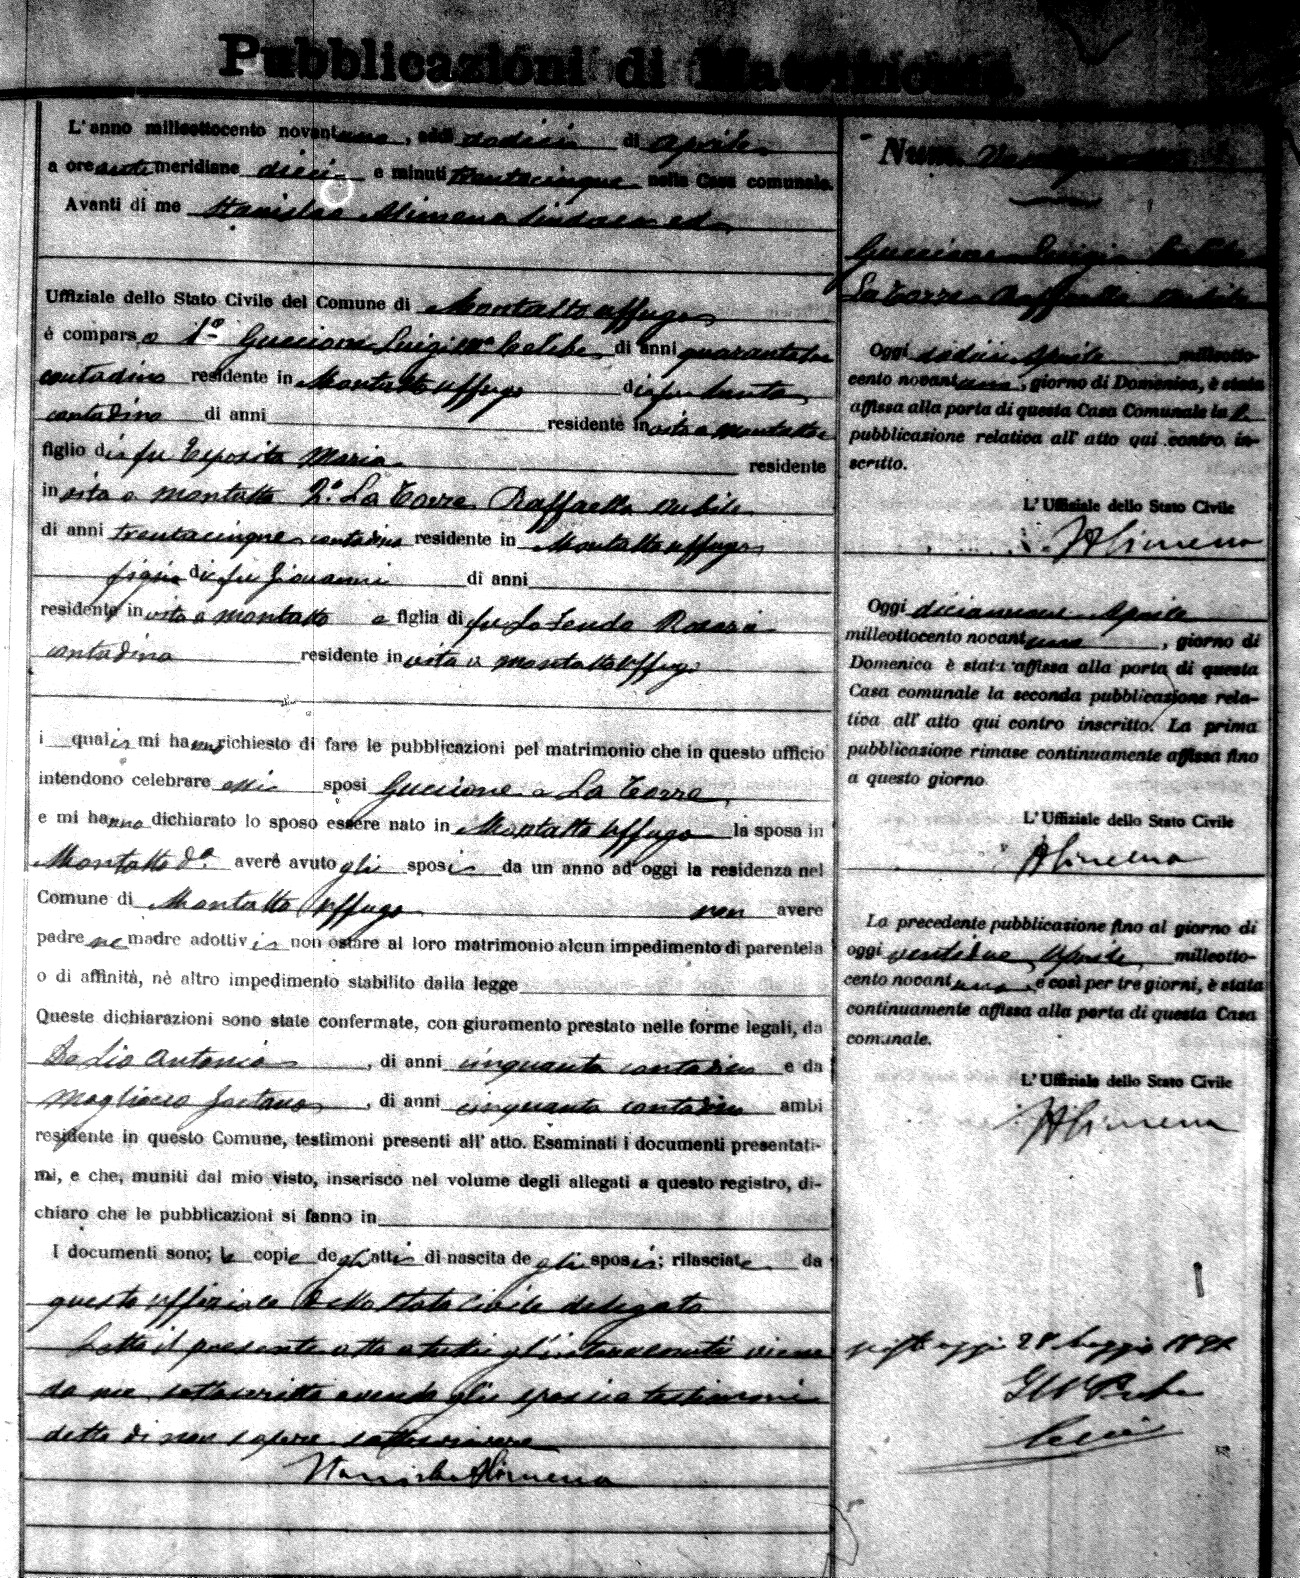 Pubblicazioni di Matrimonio.
L'anno milleottocento novantuno, addì dodici di Aprile
a ore antimeridiane dieci e minuti trentacinque nella Casa comunale.
Avanti di me Stanislao Alimena Sindaco ed
Uffiziale dello Stato Civile del Comune di Montalto Uffugo
è comparso 1º Guccione Luigi Celibe di anni
contadino residente in Montalto Uffugo di fu
contadino di anni residente in vita a Montalto
figlio di fu Esposito Maria residente
in vita a Montalto 2º La Torre Raffaella nubile
di anni trentacinque contadina residente in Montalto Uffugo
figlia di fu Giovanni di anni
residente in vita a Montalto e figlia di fu Rosaria
contadina residente in vita a Montalto Uffugo
i quali mi hanno richiesto di fare le pubblicazioni pel matrimonio che in questo ufficio
intendono celebrare essi sposi Guccione e La Torre
e mi hanno dichiarato lo sposo essere nato in Montalto Uffugo la sposa in
Montalto dº. avere avuto gli sposi da un anno ad oggi la residenza nel
Comune di Montalto Uffugo non avere
padre ne madre adottivi non ostare al loro matrimonio alcun impedimento di parentela
o di affinità, nè altro impedimento stabilito dalla legge
Queste dichiarazioni sono state confermate, con giuramento prestato nelle forme legali, da
De Lio Antonio, di anni cinquanta contadino e da
Magliocco Gaetano, di anni cinquanta contadino ambi
residente in questo Comune, testimoni presenti all'atto. Esaminati i documenti presentati-
mi, e che, muniti dal mio visto, inserisco nel volume degli allegati a questo registro, di-
chiaro che le pubblicazioni si fanno in
I documenti sono; le copie degli atti di nascita degli sposi; rilasciate da
questo uffiziale dello stato civile delegato
Letto il presente atto a tutti gl'intervenuti viene
da me sottoscritto avendo gli sposi e testimoni
detto di non sapere sottoscrivere
Stanislao Alimena
Num.
Guccione Luigi Celibe
La Torre Raffaella nubile
Oggi dodici Aprile milleotto-
cento novantuno, giorno di Domenica, è stata
affissa alla porta di questa Casa Comunale la
pubblicazione relativa all'atto qui contro in-
scritto.
L'Uffiziale dello Stato Civile
SAlimena
Oggi diciannove Aprile
milleottocento novantuno, giorno di
Domenica è stata affissa alla porta di questa
Casa comunale la seconda pubblicazione rela-
tiva all'atto qui contro inscritto. La prima
pubblicazione rimase continuamente affissa fino
a questo giorno
L'Uffiziale dello Stato Civile
SAlimena
La precedente pubblicazione fino al giorno di
oggi ventidue Aprile milleotto-
cento novantuno e così per tre giorni, è stata
continuamente affissa alla porta di questa Casa
comunale.
L'Uffiziale dello Stato Civile
SAlimena
oggi 28 Maggio